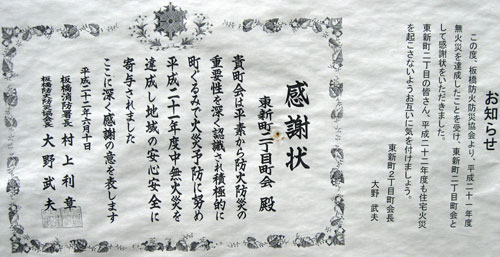 お知らせ
この度、板橋防火防災協会より、平成二十一年度
無火災を達成したことを受け、東新町二丁目町会と
して感謝状をいただきました。
東新町二丁目の皆さん、平成二十二年度も住宅火災
を起こさないようお互いに気を付けましょう。
東新町2丁目町会長
大野 武夫
感謝状
東新町二丁目町会 殿
貴町会は平素から防火防災の
重要性を深く認識され積極的に
町ぐるみで火災予防に努め
平成二十一年度中無火災を
達成し地域の安心安全に
寄与されました
ここに深く感謝の意を表します
平成二十二年六月十日
板橋消防署長 村上利章
板橋防火防災協会長 大野武夫